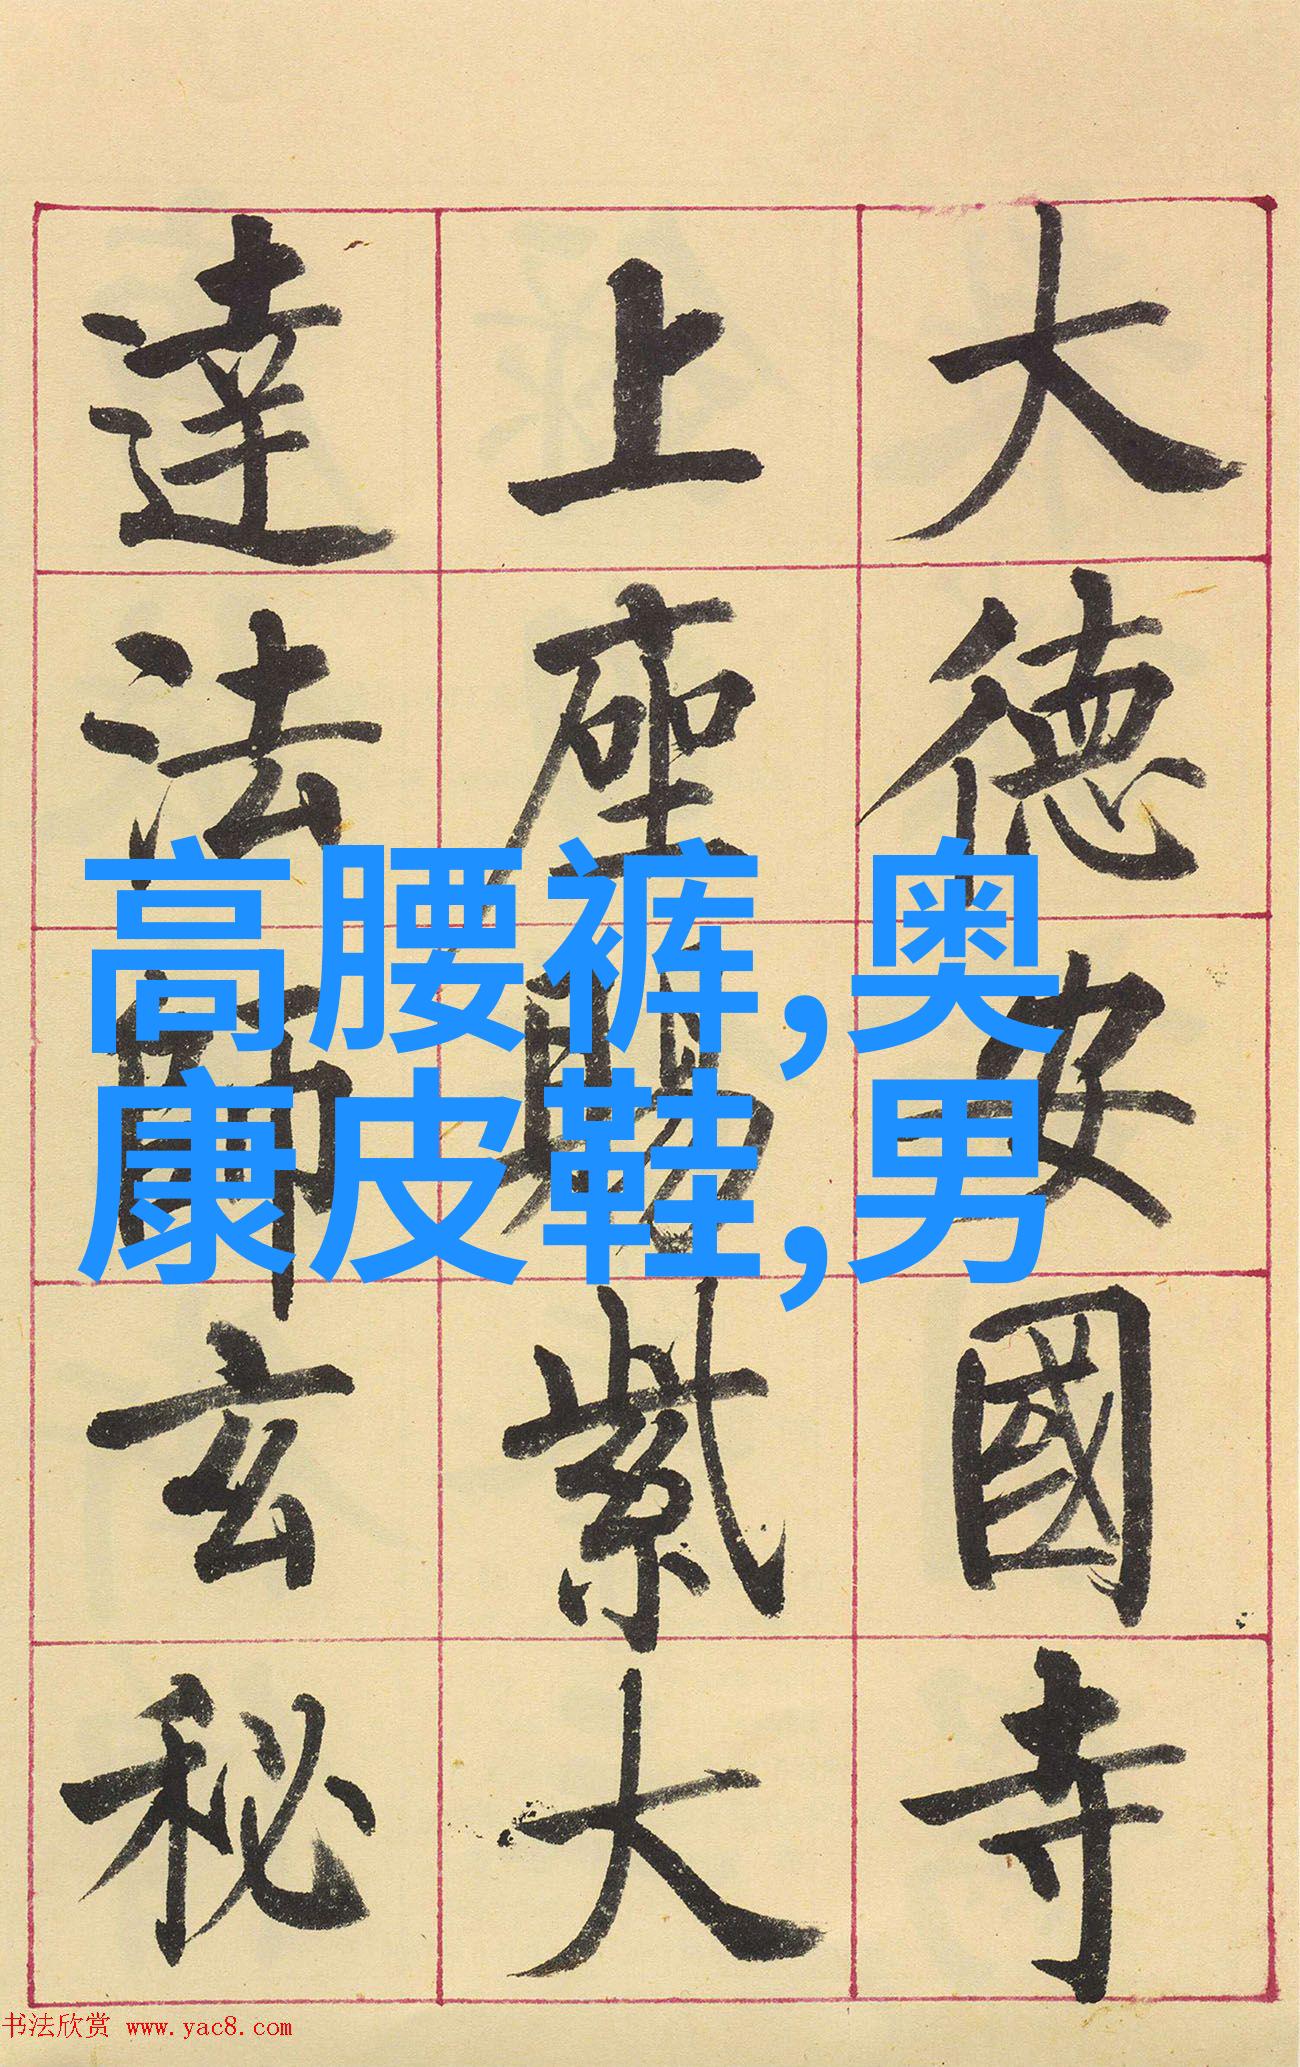 大德安國寺
上座賜紫大
達法師玄秘
高腰裤,奥
康皮鞋,男
书法欣赏 www.yac8.com